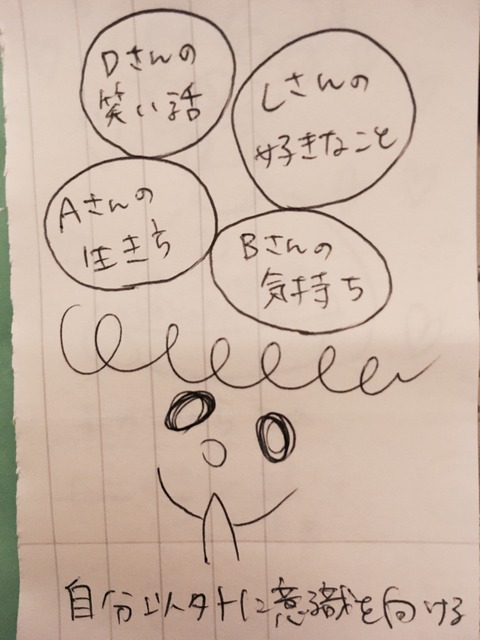 Dさんの
笑い話
Lさんの
好きなこと
Aさんの
Bさんの
気持ち
自分以外に意識を向ける